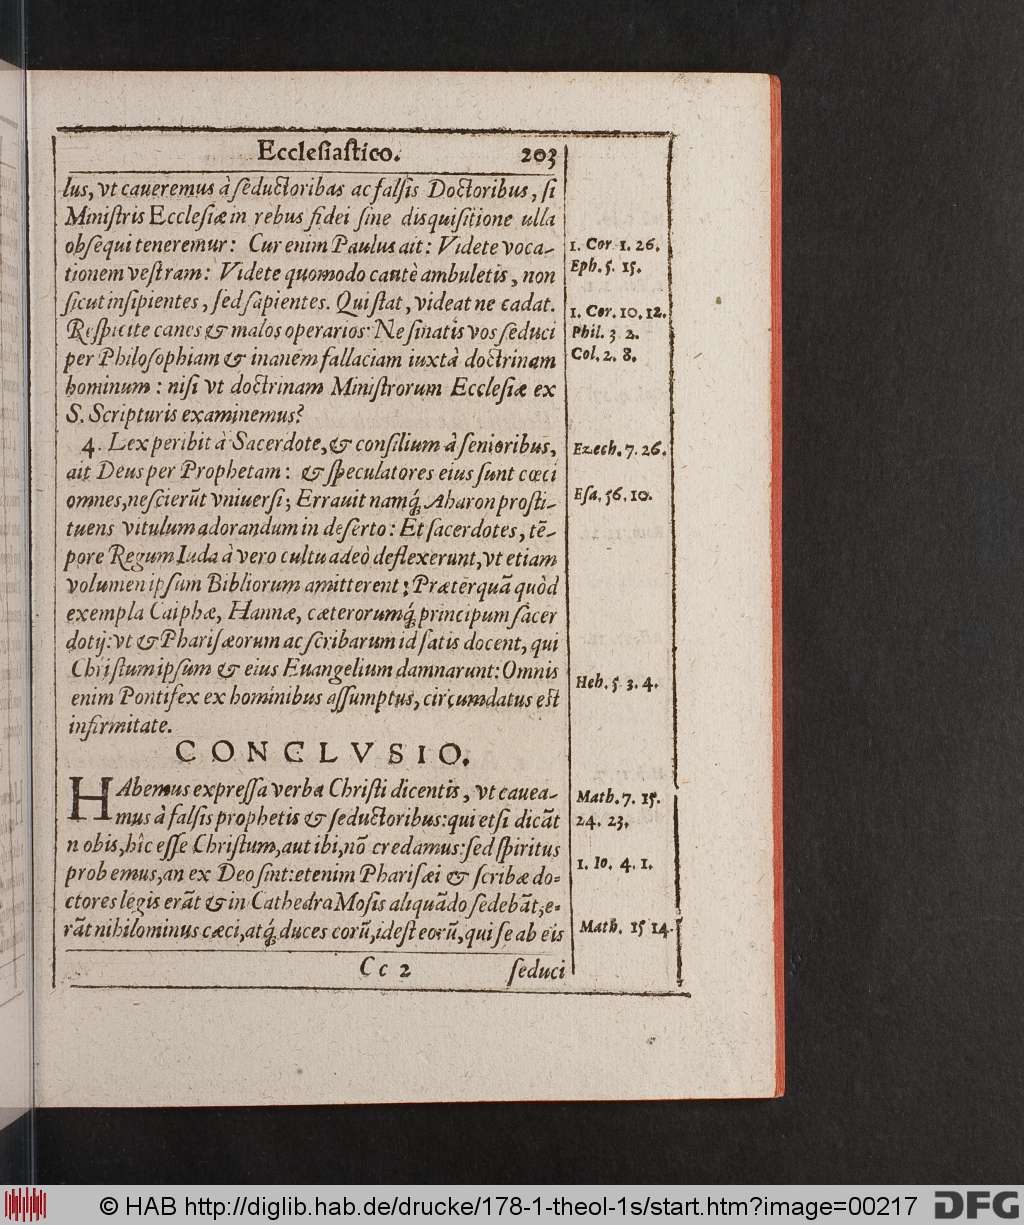 Ecclesiastico. 203
lus, vt caueremus à seductoribus ac falsis Doctoribus, si
Ministris Ecclesiæ in rebus fidei sine disquisitione ulla
obsequi teneremur: Cur enim Paulus ait: Videte voca-
1. Cor. 1. 26.
tionem vestram: Videte quomodo cautè ambuletis, non
Eph. 5. 15.
sicut insipientes, sed sapientes. Qui stat, videat ne cadat.
1. Cor. 10. 12.
Respicite canes & malos operarios: Ne sinatis vos seduci
Phil. 3 2.
per Philosophiam & inanem fallaciam iuxtà doctrinam
Col. 2. 8.
hominum: nisi vt doctrinam Ministrorum Ecclesiæ ex
S. Scripturis examinemus?
4. Lex peribit à Sacerdote, & consilium à senioribus,
Ezech. 7. 26.
ait Deus per Prophetam: & speculatores eius sunt cœci
omnes, nescierūt vniuersi; Errauit namq́; Aharon prosti-
Esa. 56. 10.
tuens vitulum adorandum in deserto: Et sacerdotes, tē-
pore Regum Iuda à vero cultu adeò deflexerunt, vt etiam
volumen ipsum Bibliorum amitterent; Præterquā quòd
exempla Caiphæ, Hannæ, cæterorumq́; principum sacer
dotij: vt & Pharisæorum ac scribarum id satis docent, qui
Christum ipsum & eius Euangelium damnarunt: Omnis
Heb. 5 3. 4.
enim Pontifex ex hominibus assumptus, circumdatus est
infirmitate.
CONCLVSIO.
HAbemus expressa verba Christi dicentis, vt cauea-
Math. 7. 15.
mus à falsis prophetis & seductoribus: qui etsi dicāt
24. 23.
n obis, hîc esse Christum, aut ibi, nō credamus: sed spiritus
1. Io. 4. 1.
prob emus, an ex Deo sint: etenim Pharisæi & scribæ do-
ctores legis erāt & in Cathedra Mosis aliquādo sedebāt; e-
rāt nihilominus cæci, atq́; duces corū, idest eorū, qui se ab eis
Math. 15 14.
Cc 2 seduci
© HAB http://diglib.hab.de/drucke/178-1-theol-1s/start.htm?image=00217 DFG